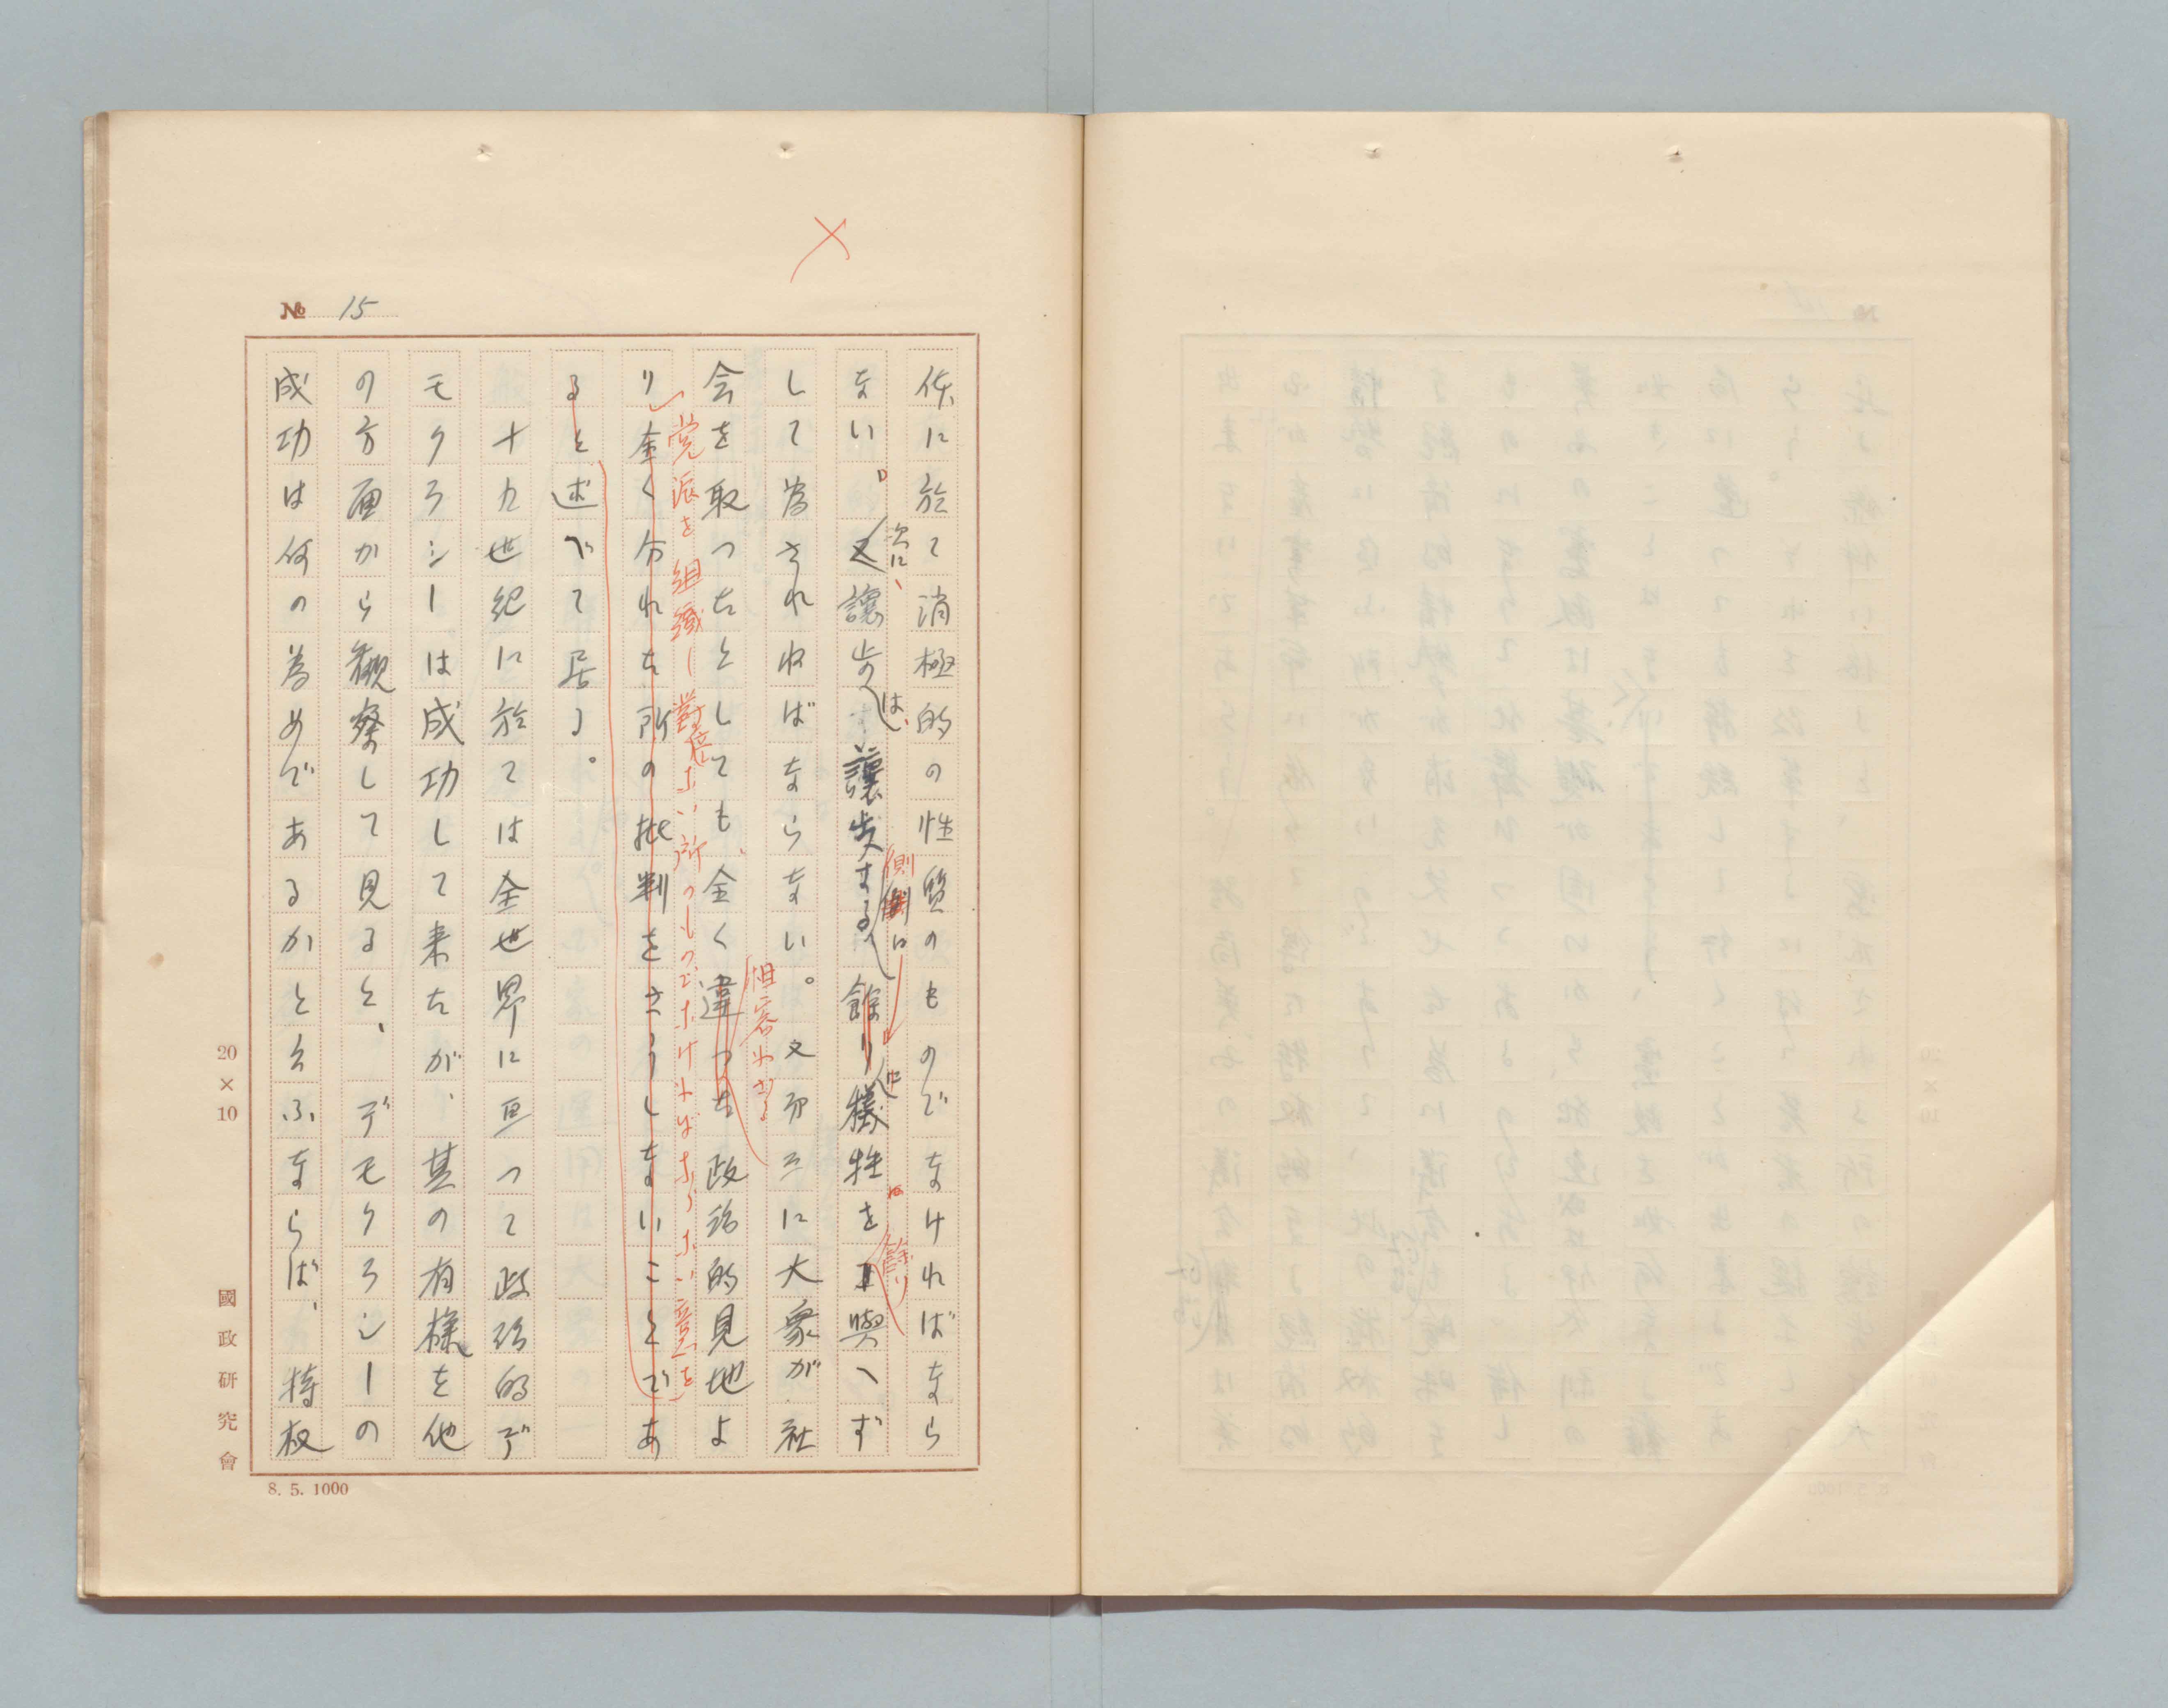 № 15
依に於て消極的の性質のものでなければなら
ない。次に、譲歩は、譲歩する側に餘りに犠牲を餘り與へず
して為されねばならない。又第三に大衆が社
会を取つたとしても、全く違つた政治的見地よ
相容れざる
り全く分れた所の批判をさうしないことであ
党派を組織し對抗ない所のものでなければならない意を
ると述べて居る。
十九世紀に於ては全世界に亘つて政治的デ
モクラシーは成功して来たが、其の有様を他
の方面から観察して見ると、デモクラシーの
成功は何の為めであるかと云ふならば、特权
20×10
國政研究會
8. 5. 1000